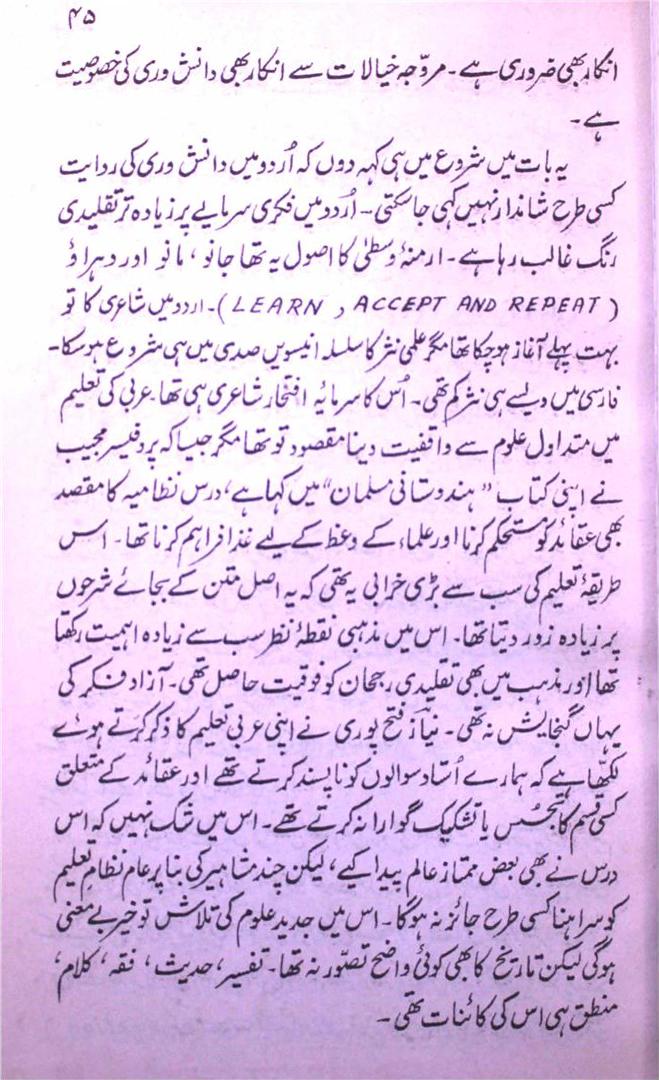 ۴۵
انکار بھی ضروری ہے۔ مروّجہ خیالات سے انکار بھی دانش وری کی خصوصیت
ہے۔
یہ بات میں شروع میں ہی کہہ دوں کہ اُردو میں دانش وری کی روایت
کسی طرح شاندار نہیں کہی جا سکتی۔ اُردو میں فکری سرمایے پر زیادہ تر تقلیدی
رنگ غالب رہا ہے۔ ازمنۂ وسطیٰ کا اصول یہ تھا جانو، مانو اور دہراؤ
(LEARN, ACCEPT AND REPEAT)۔ اردو میں شاعری کا تو
بہت پہلے آغاز ہو چکا تھا مگر علمی نثر کا سلسلہ انیسویں صدی میں ہی شروع ہو سکا۔
فارسی میں ویسے ہی نثر کم تھی۔ اُس کا سرمایۂ افتخار شاعری ہی تھا۔ عربی کی تعلیم
میں متداول علوم سے واقفیت دینا مقصود تو تھا مگر جیسا کہ پروفیسر مجیب
نے اپنی کتاب "ہندوستانی مسلمان" میں کہا ہے، درس نظامیہ کا مقصد
بھی عقائد کو مستحکم کرنا اور علماء کے وعظ کے لیے غذا فراہم کرنا تھا۔ اس
طریقۂ تعلیم کی سب سے بڑی خرابی یہ تھی کہ یہ اصل متن کے بجائے شرحوں
پر زیادہ زور دیتا تھا۔ اس میں مذہبی نقطۂ نظر سب سے زیادہ اہمیت رکھتا
تھا اور مذہب میں بھی تقلیدی رجحان کو فوقیت حاصل تھی۔ آزاد فکر کی
یہاں گنجایش نہ تھی۔ نیاز فتح پوری نے اپنی عربی تعلیم کا ذکر کرتے ہوئے
لکھا ہے کہ ہمارے اُستاد سوالوں کو ناپسند کرتے تھے اور عقائد کے متعلق
کسی قسم کا تجسّس یا تشکیک گوارا نہ کرتے تھے۔ اس میں شک نہیں کہ اس
درس نے بھی بعض ممتاز عالم پیدا کیے، لیکن چند مشاہیر کی بنا پر عام نظامِ تعلیم
کو سراہنا کسی طرح جائز نہ ہوگا۔ اس میں جدید علوم کی تلاش تو خیر بے معنی
ہوگی لیکن تاریخ کا بھی کوئی واضح تصوّر نہ تھا۔ تفسیر، حدیث، فقہ، کلام،
منطق ہی اس کی کائنات تھی۔